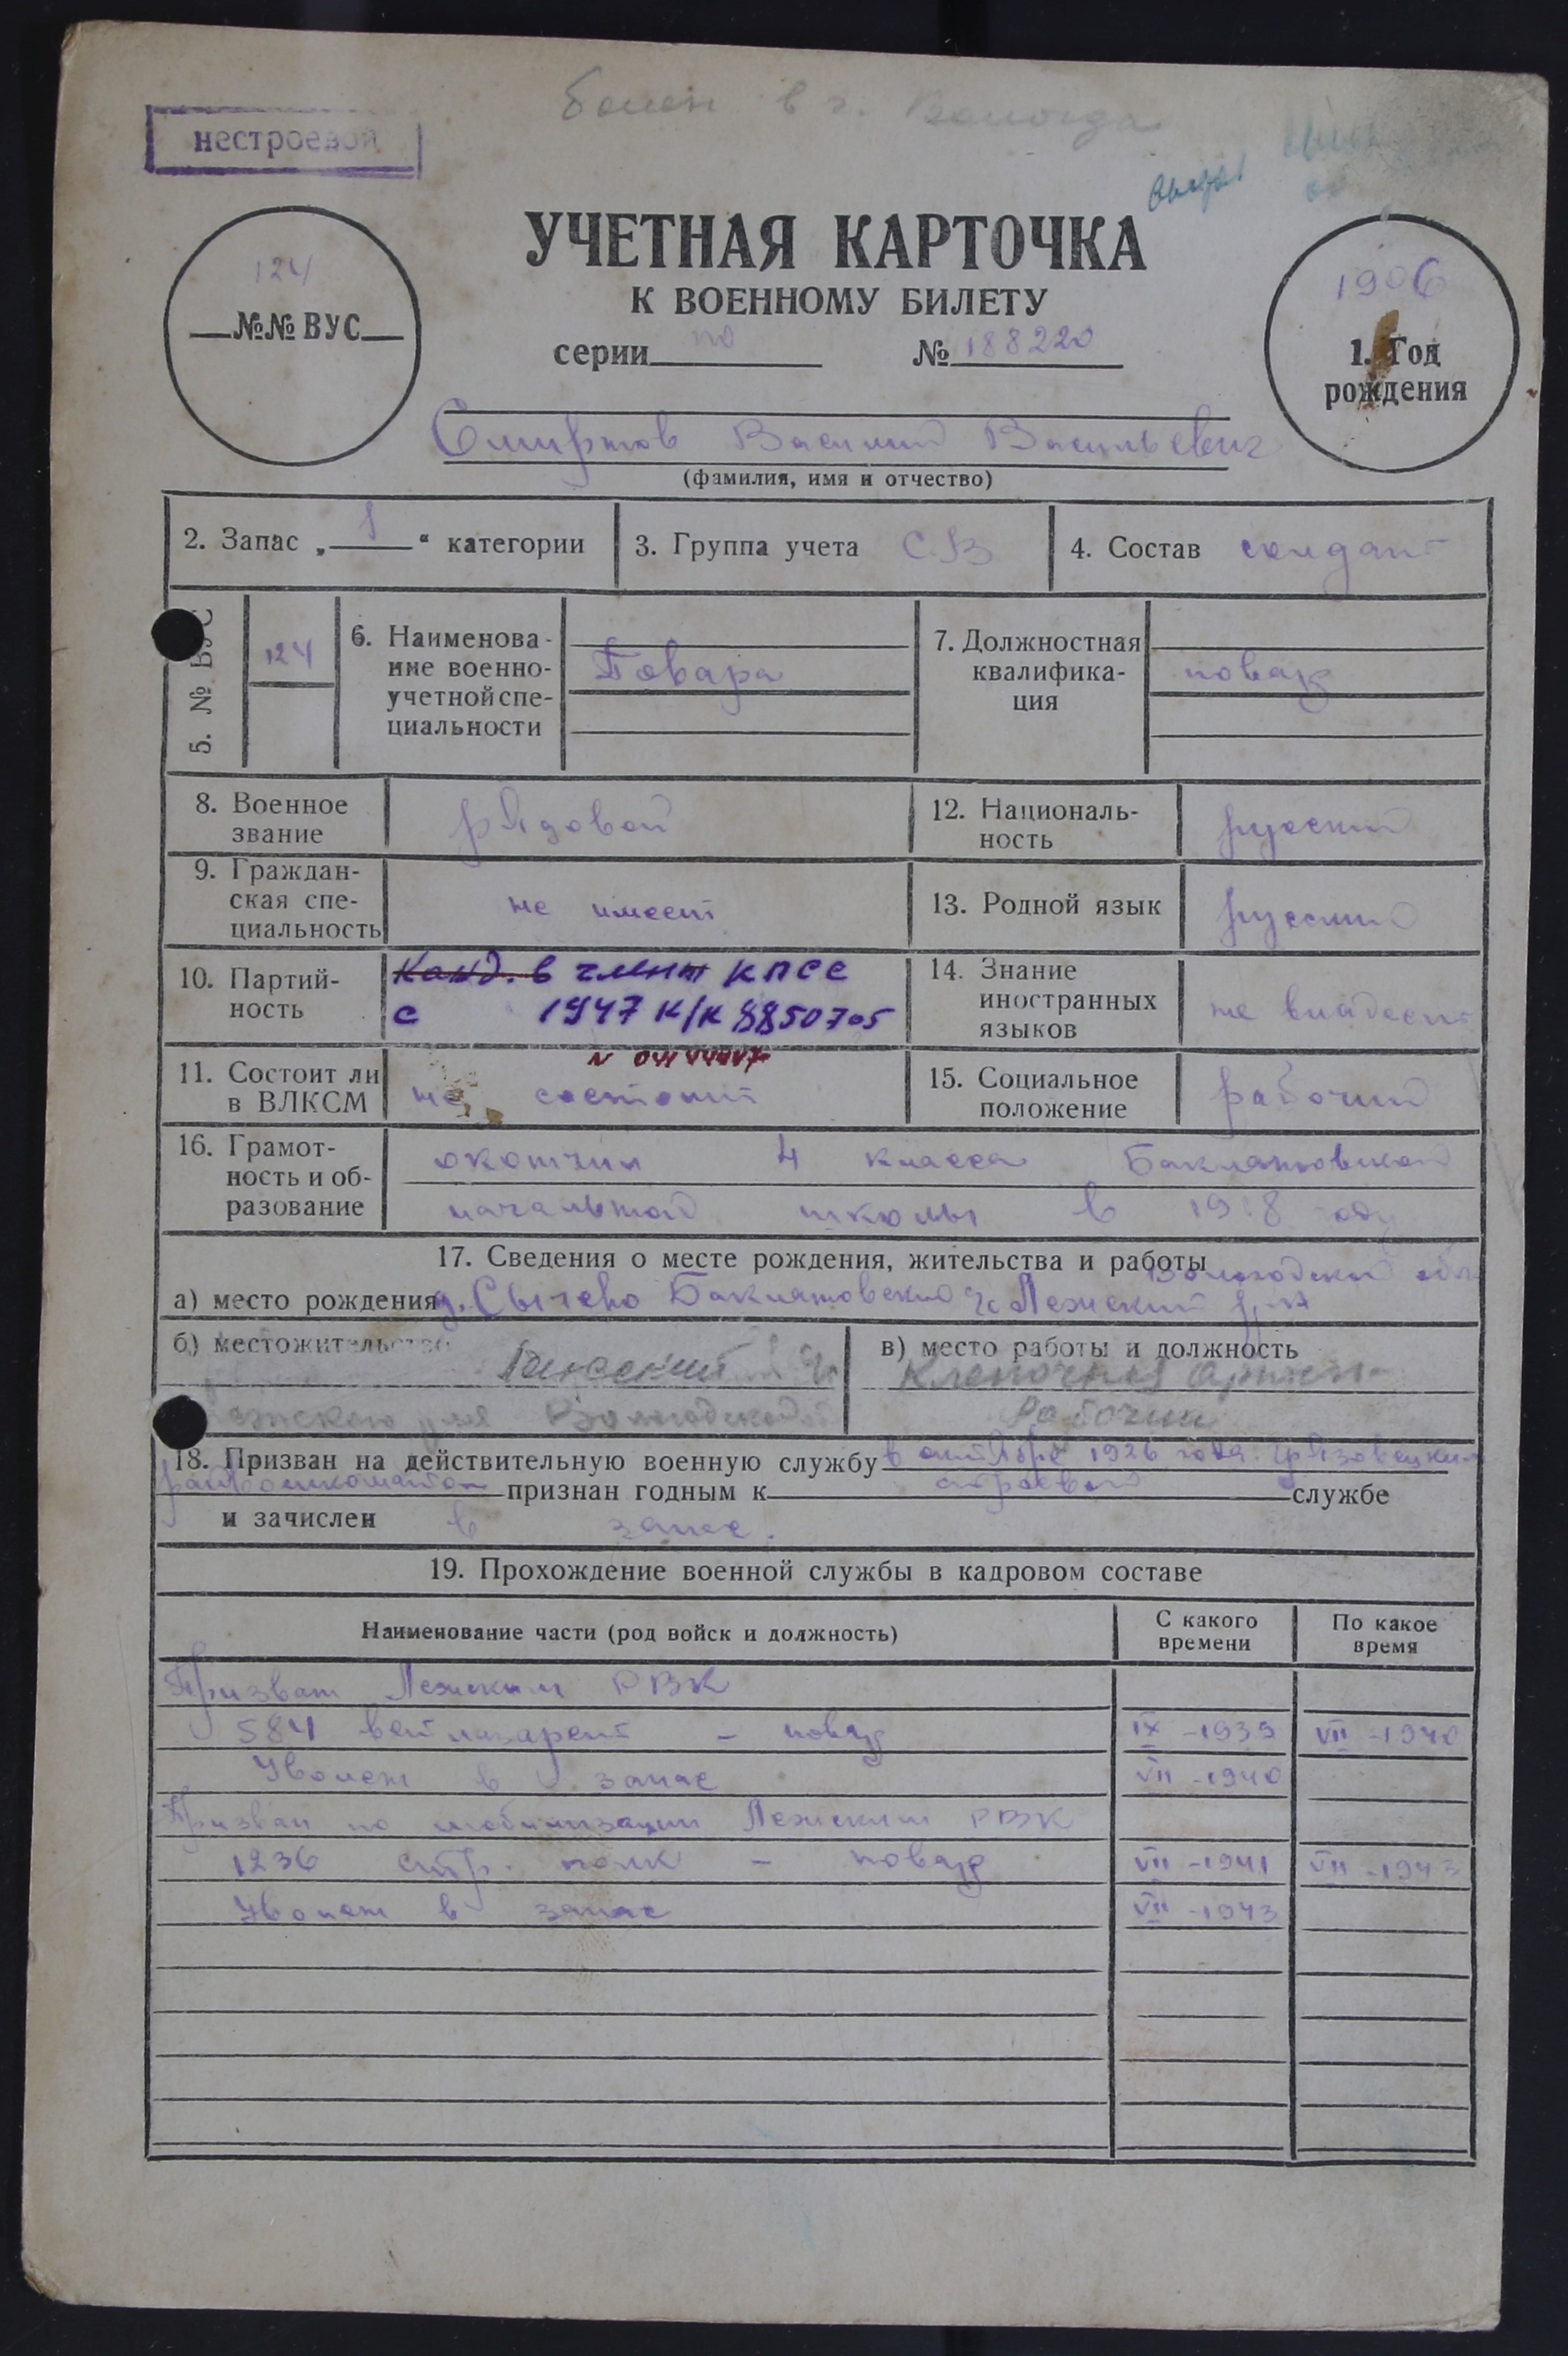 болен в г. Вологда
нестроевой
УЧЕТНАЯ КАРТОЧКА
К ВОЕННОМУ БИЛЕТУ
124
№№ ВУС
серии по № 188220
1906
1. Год
рождения
Смирнов Василий Васильевич
(фамилия, имя и отчество)
2. Запас „ 1 “ категории
3. Группа учета С.В
4. Состав солдат
5. № ВУС
124
6. Наименова-
ние военно-
учетной спе-
циальности
Повара
7. Должностная
квалифика-
ция
повар
8. Военное
звание
рядовой
12. Националь-
ность
русский
9. Граждан-
ская спе-
циальность
не имеет
13. Родной язык
русский
10. Партий-
ность
Канд. в члены КПСС
с 1947 К/К 8850705
14. Знание
иностранных
языков
не владеет
11. Состоит ли
в ВЛКСМ
не состоит
15. Социальное
положение
рабочий
16. Грамот-
ность и об-
разование
окончил 4 класса Баклановской
начальной школы в 1918 году
17. Сведения о месте рождения, жительства и работы
Вологодской обл
а) место рождения д. Сычево Баклановский Лежский р-н
б) местожительство
Лежского р-на Вологодской
в) место работы и должность
Клепочная Артель
Рабочий
18. Призван на действительную военную службу в октябре 1926 года Грязовецким
райвоенкоматом признан годным к строевой службе
и зачислен в запас.
19. Прохождение военной службы в кадровом составе
Наименование части (род войск и должность)
С какого
времени
По какое
время
Призван Лежским РВК
584 ветлазарет – повар IX -1939 VII -1940
Уволен в запас VII -1940
Призван по мобилизации Лежским РВК
1236 стр. полк – повар VII -1941 VII -1943
Уволен в запас VII -1943